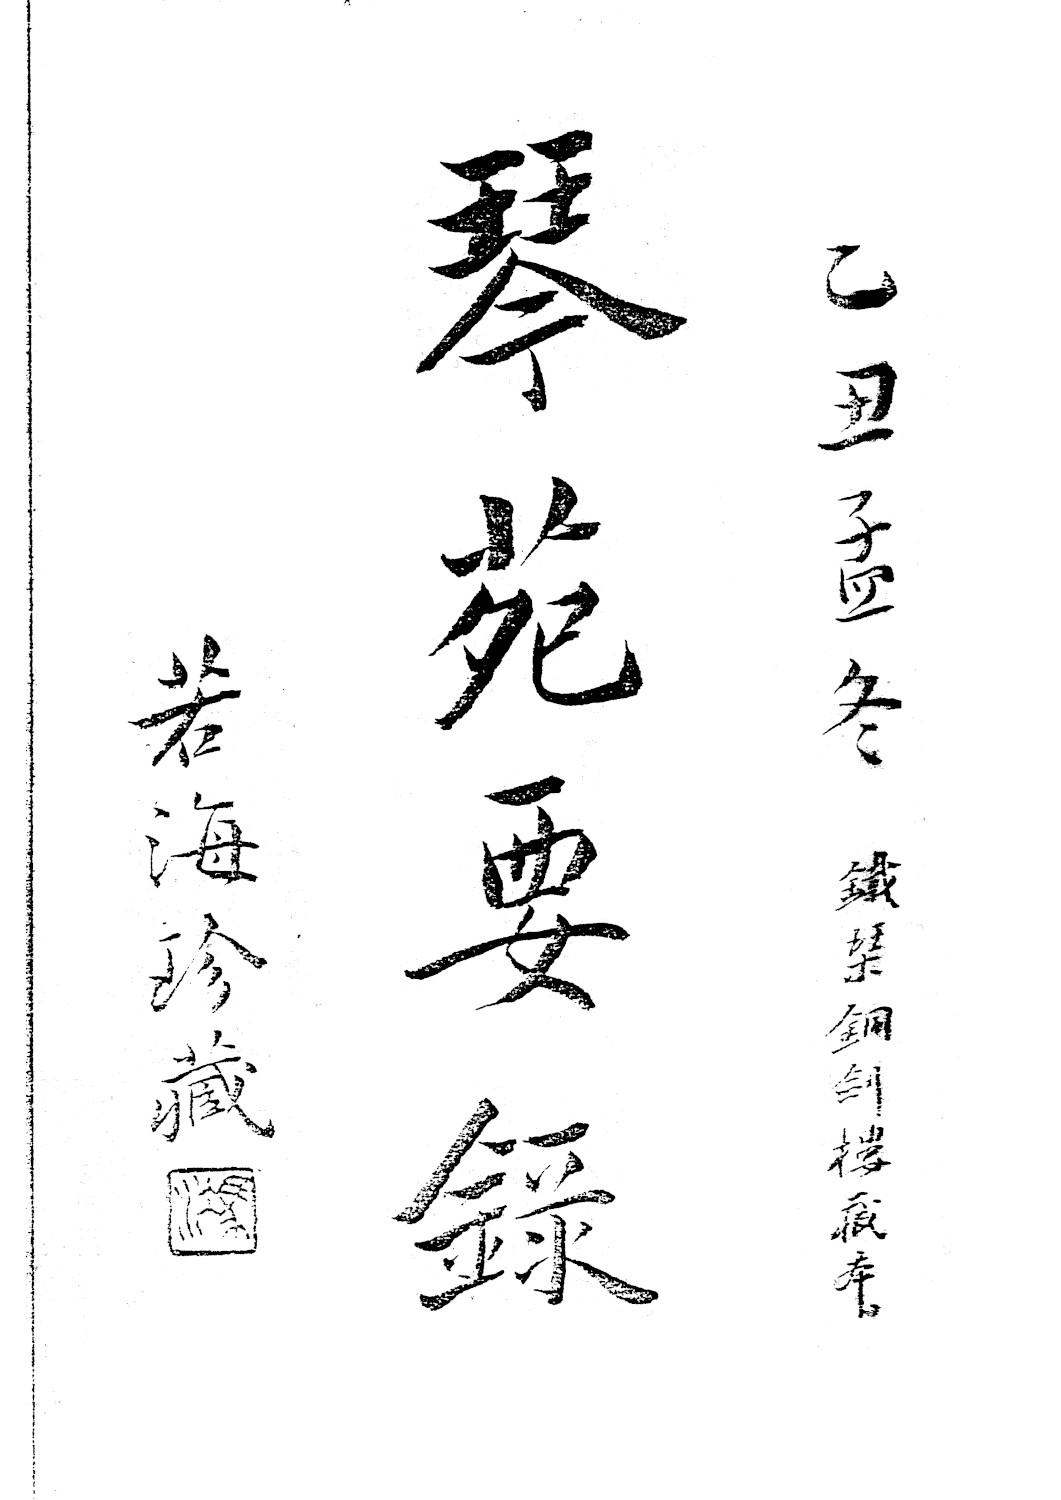 乙丑孟冬 鐵琴銅劍樓藏本
琴苑要錄
若海珍藏